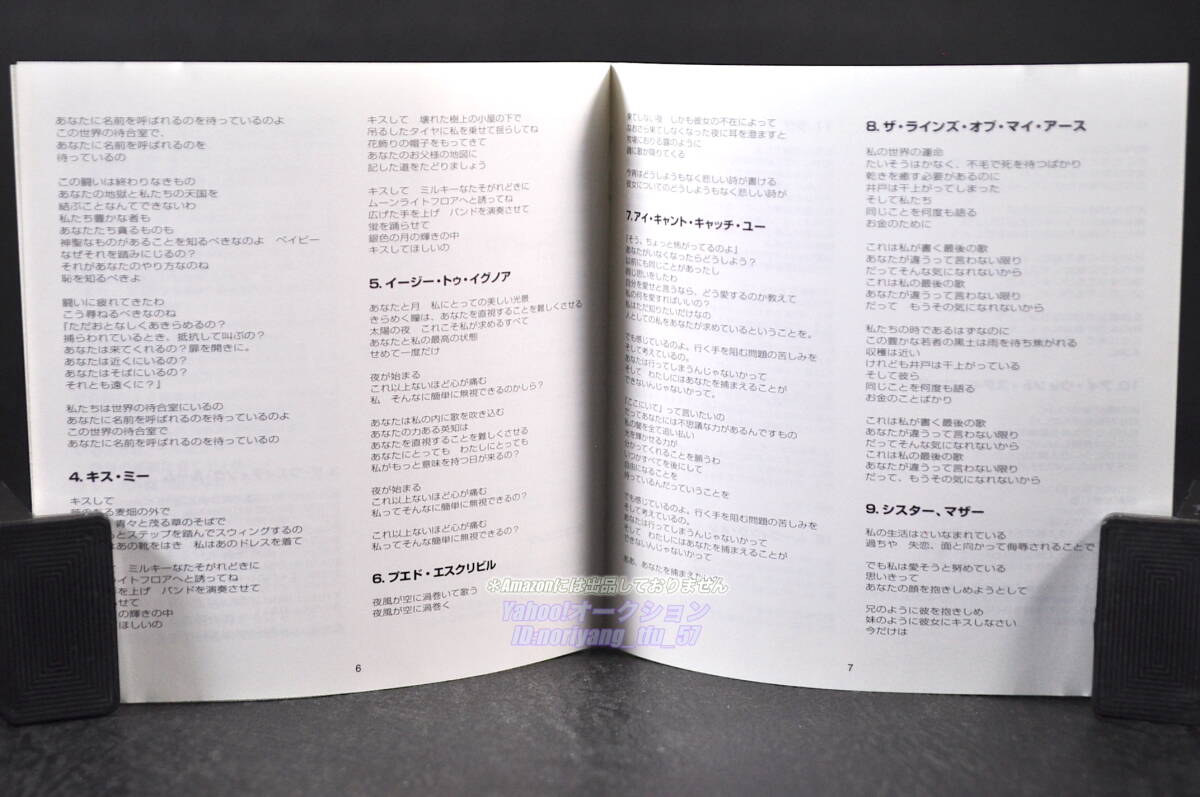 あなたに名前を呼ばれるのを待っているのよ
この世界の待合室で、
あなたに名前を呼ばれるのを
待っているの
この闘いは終わりなきもの
あなたの地獄と私たちの天国を
結ぶことなんてできないわ
私たち豊かな者も
あなたたち貪るものも
神聖なものがあることを知るべきなのよ　ベイビー
なぜそれを踏みにじるの？
それがあなたのやり方なのね
恥を知るべきよ
闘いに疲れてきたわ
こう尋ねるべきなのね
『ただおとなしくあきらめるの？
捕らわれているとき、抵抗して叫ぶの？
あなたは来てくれるの？扉を開きに。
あなたは近くにいるの？
あなたはそばにいるの？
それとも遠くに？』
私たちは世界の待合室にいるの
あなたに名前を呼ばれるのを待っているのよ
この世界の待合室で
あなたに名前を呼ばれるのを待っているの
4. キス・ミー
キスして
ある麦畑の外で
青々と茂る草のそばで
とステップを踏んでスウィングするの
はあの靴をはき　私はあのドレスを着て
ミルキーなたそがれどきに
イトフロアへと誘ってね
手を上げ　バンドを演奏させて
せて
の輝きの中
ほしいの
キスして　壊れた樹上の小屋の下で
吊るしたタイヤに私を乗せて揺らしてね
花飾りの帽子をもってきて
あなたのお父様の地図に
記した道をたどりましょう
キスして　ミルキーなたそがれどきに
ムーンライトフロアへと誘ってね
広げた手を上げ　バンドを演奏させて
蛍を踊らせて
銀色の月の輝きの中
キスしてほしいの
5. イージー・トゥ・イグノア
あなたと月　私にとっての美しい光景
きらめく瞳は、あなたを直視することを難しくさせる
太陽の夜　これこそ私が求めるすべて
あなたと私の最高の状態
せめて一度だけ
夜が始まる
これ以上ないほど心が痛む
私　そんなに簡単に無視できるのかしら？
あなたは私の内に歌を吹き込む
あなたの力ある英知は
あなたを直視することを難しくさせる
あなたにとっても　わたしにとっても
私がもっと意味を持つ日が来るの？
夜が始まる
これ以上ないほど心が痛む
私ってそんなに簡単に無視できるの？
これ以上ないほど心が痛む
私ってそんなに簡単に無視できるの？
6. プエド・エスクリビル
夜風が空に渦巻いて歌う
夜風が空に渦巻く
6
果てしない夜　しかも彼女の不在によって
なおさら果てしなくなった夜に耳を澄ますと
牧場におりる露のように
魂に歌が降りてくる
今宵はどうしようもなく悲しい詩が書ける
彼女についてのどうしようもなく悲しい詩が
7. アイ・キャント・キャッチ・ユー
『そう、ちょっと怖がってるのよ』
あなたがいなくなったらどうしよう？
以前にも同じことがあったし
同じ思いをしたわ
自分を愛せと言うなら、どう愛するのか教えて
私の何を愛すればいいの？
私はただ知りたいだけなの
人としての私をあなたが求めているということを。
でも感じているのよ。行く手を阻む問題の苦しみを
そして考えているの。
あなたは行ってしまうんじゃないかって
そして　わたしにはあなたを捕まえることが
できないんじゃないかって。
『ここにいて』って言いたいの
だってあなたには不思議な力があるんですもの
私の闇を全て追い払い
光を輝かせる力が
分かってくれることを願うわ
いつかすべてを後にして
自由になることを
待っているんだっていうことを
でも感じているのよ、行く手を阻む問題の苦しみを
そして考えているの。
あなたは行ってしまうんじゃないかって
そして　わたしにはあなたを捕まえることが
できないんじゃないかって
ああ、あなたを捕まえたい
8. ザ・ラインズ・オブ・マイ・アース
私の世界の運命
たいそうはかなく、不毛で死を待つばかり
乾きを癒す必要があるのに
井戸は干上がってしまった
そして私たち
同じことを何度も語る
お金のために
これは私が書く最後の歌
あなたが違うって言わない限り
だってそんな気になれないから
これは私の最後の歌
あなたが違うって言わない限り
だって　もうその気になれないから
私たちの時であるはずなのに
この豊かな若者の黒土は雨を待ち焦がれる
収穫は近い
けれども井戸は干上がっている
そして彼ら
同じことを何度も語る
お金のことばかり
これは私が書く最後の歌
あなたが違うって言わない限り
だってそんな気になれないから
これは私の最後の歌
あなたが違うって言わない限り
だって、もうその気になれないから
9. シスター、マザー
私の生活はさいなまれている
過ちや　失恋、面と向かって侮辱されることで
でも私は愛そうと努めている
思いきって
あなたの顔を抱きしめようとして
兄のように彼を抱きしめ
妹のように彼女にキスしなさい
今だけは
7
※Amazonには出品しておりません
Yahoo!オークション
ID:noriyang_tfu_57